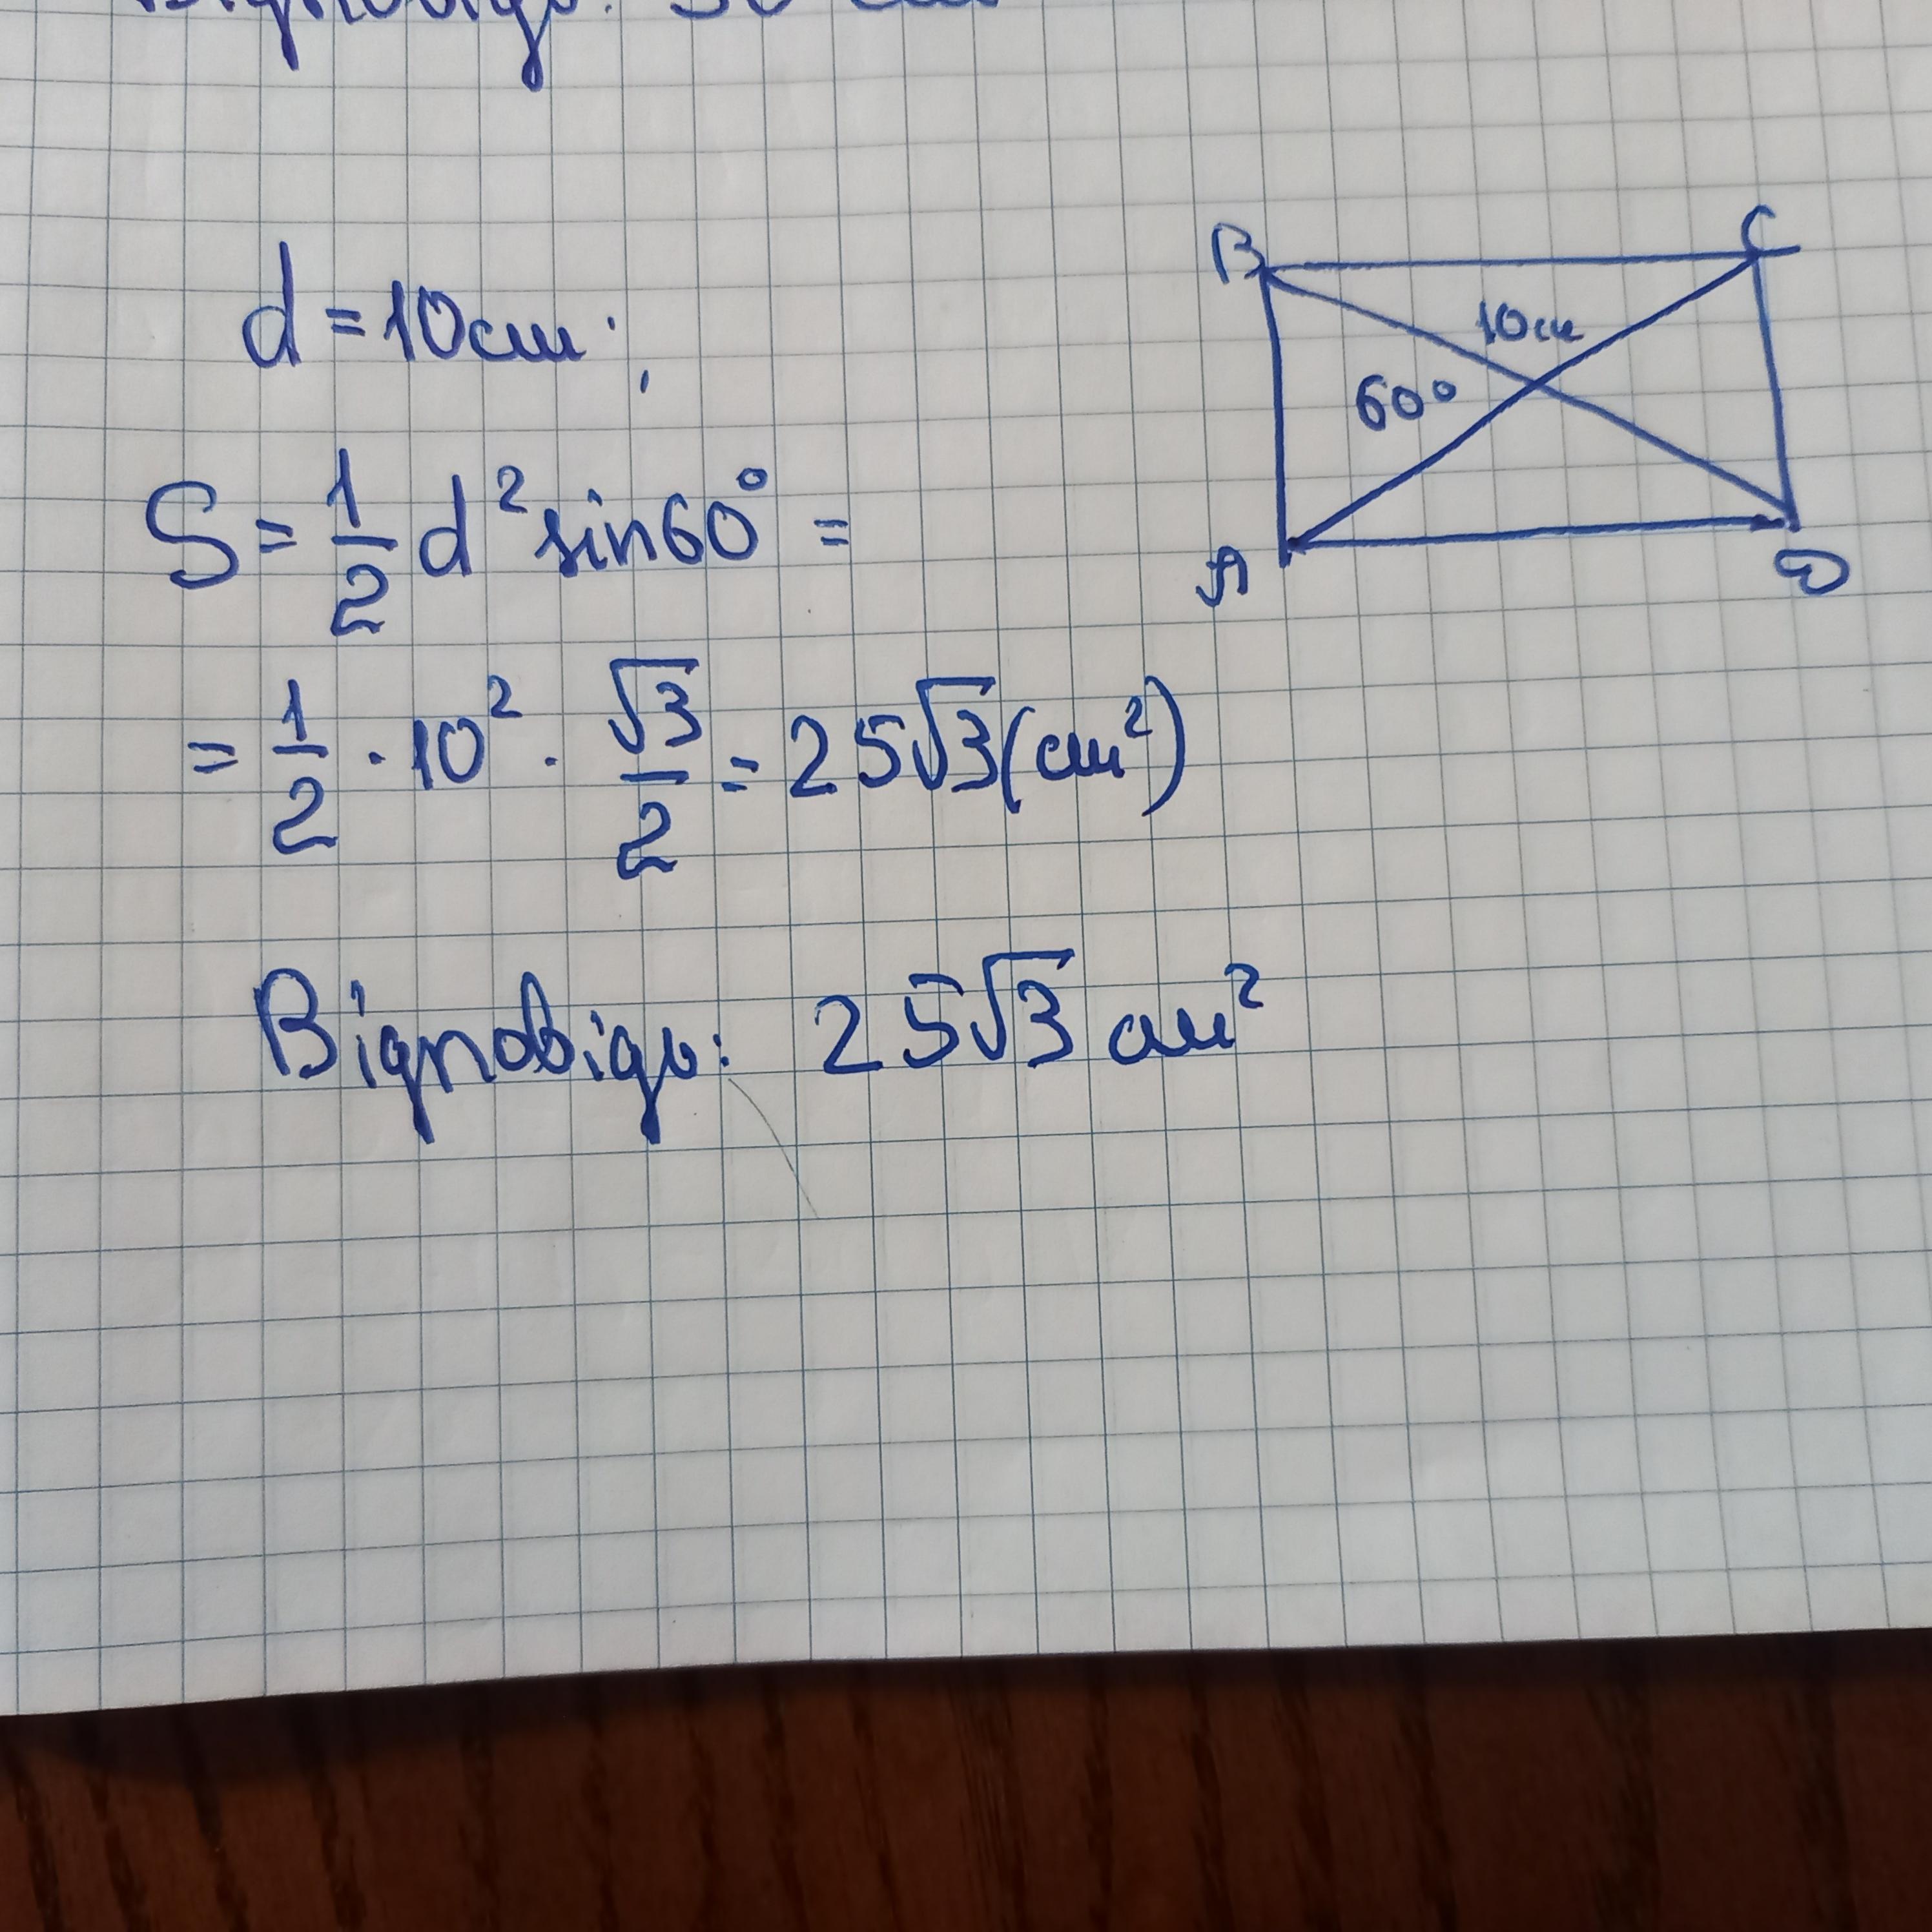 d = 10см;
B C
10см
60°
A D
S = 1/2 d² sin60° =
= 1/2 · 10² · √3/2 = 25√3 (см²)
Відповідь: 25√3 см²